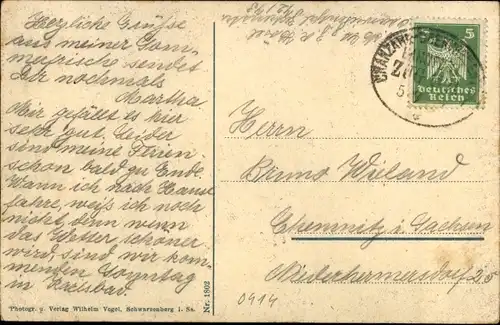 Herzliche Grüße
aus meiner Som-
merfrische sendet
Dir nochmals
Martha
Mir gefällt es hier
sehr gut. Leider
sind meine Ferien
schon bald zu Ende.
Wann ich nach Hause
fahre, weiß ich noch
nicht, denn wenn
das Wetter schöner
wird, sind wir kom-
menden Sonntag
in
5
Deutsches
Reich
Herrn
Bruno Wieland
Chemnitz i. Sachsen
Niederhermersdorf
0414
Nr. 1802
Photogr. u. Verlag Wilhelm Vogel, Schwarzenberg i. Sa.